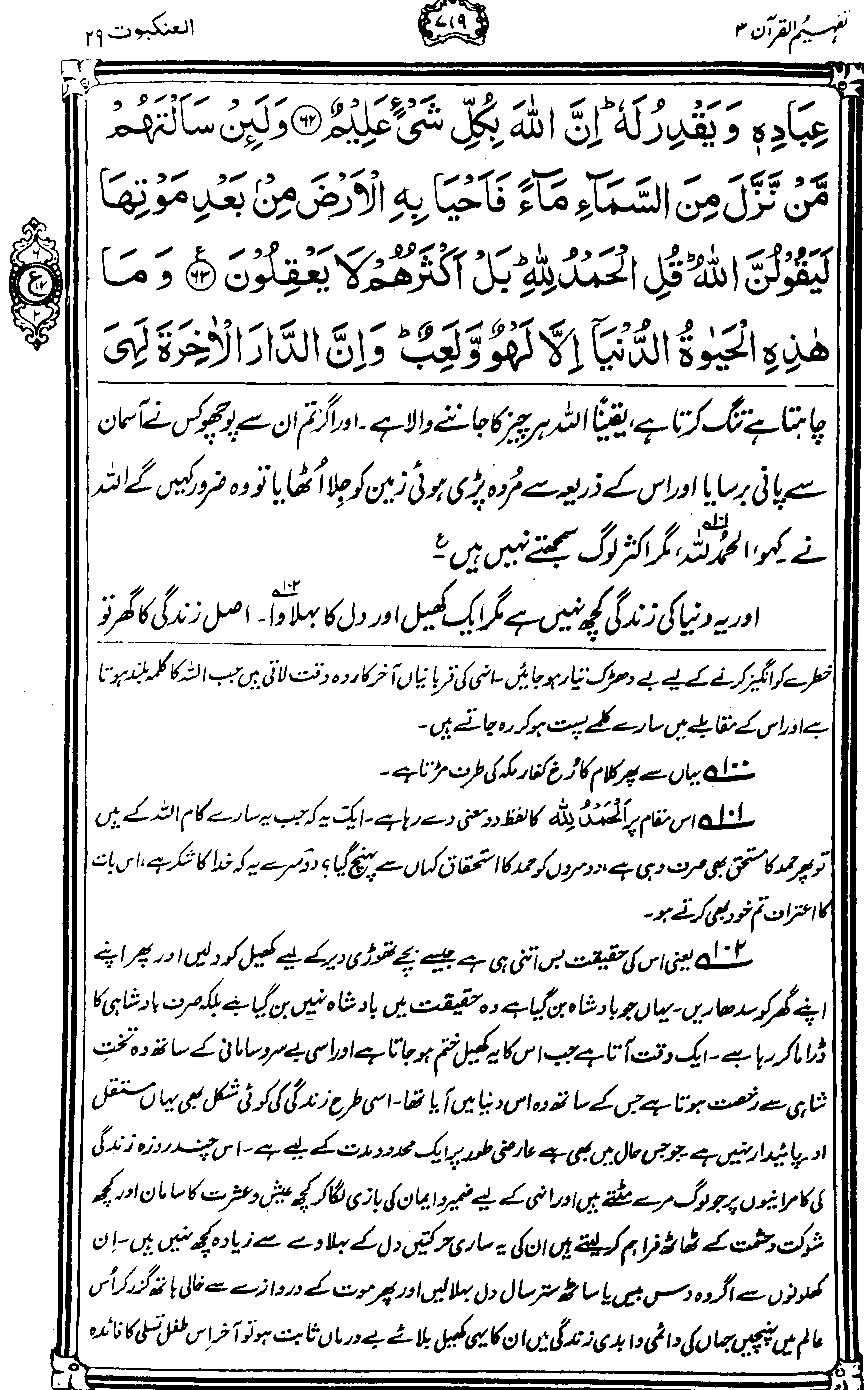 تفہیم القرآن ۳
۷۱۹
العنکبوت ۲۹
عِبَادِهٖ وَ يَقْدِرُ لَهٗ ؕ اِنَّ اللّٰهَ بِكُلِّ شَیْءٍ عَلِیْمٌ ﴿۶۲﴾ وَ لَئِنْ سَاَلْتَهُمْ
مَّنْ نَّزَّلَ مِنَ السَّمَآءِ مَآءً فَاَحْیَا بِهِ الْاَرْضَ مِنْۢ بَعْدِ مَوْتِهَا
لَیَقُوْلُنَّ اللّٰهُ ؕ قُلِ الْحَمْدُ لِلّٰهِ ؕ بَلْ اَكْثَرُهُمْ لَا یَعْقِلُوْنَ ﴿۶۳﴾ۧ وَ مَا
هٰذِهِ الْحَیٰوةُ الدُّنْیَاۤ اِلَّا لَهْوٌ وَّ لَعِبٌ ؕ وَ اِنَّ الدَّارَ الْاٰخِرَةَ لَهِیَ
۶
ع
۲
چاہتا ہے تنگ کرتا ہے، یقیناً اللہ ہر چیز کا جاننے والا ہے۔ اور اگر تم ان سے پوچھو کس نے آسمان
سے پانی برسایا اور اس کے ذریعہ سے مُردہ پڑی ہوئی زمین کو جِلا اُٹھایا تو وہ ضرور کہیں گے اللہ
نے۔ کہو، الحمدُ للہ،۱۰۱ مگر اکثر لوگ سمجھتے نہیں ہیں۔ ع
اور یہ دنیا کی زندگی کچھ نہیں ہے مگر ایک کھیل اور دل کا بہلاوا۱۰۲۔ اصل زندگی کا گھر تو
خطرے کو انگیز کرنے کے لیے بے دھڑک تیار ہو جائیں۔ انہی کی قربانیاں آخر کار وہ وقت لاتی ہیں جب اللہ کا کلمہ بلند ہوتا
ہے اور اس کے مقابلے میں سارے کلمے پست ہو کر رہ جاتے ہیں۔
۱۰۰ یہاں سے پھر کلام کا رُخ کفار مکہ کی طرف مڑتا ہے۔
۱۰۱ اس مقام پر اَلْحَمْدُ لِلّٰہ کا لفظ دو معنی دے رہا ہے۔ ایک یہ کہ جب یہ سارے کام اللہ کے ہیں
تو پھر حمد کا مستحق بھی صرف وہی ہے، دوسروں کو حمد کا استحقاق کہاں سے پہنچ گیا؟ دوسرے یہ کہ خدا کا شکر ہے، اس بات
کا اعتراف تم خود بھی کرتے ہو۔
۱۰۲ یعنی اس کی حقیقت بس اتنی ہی ہے جیسے بچے تھوڑی دیر کے لیے کھیل کود لیں اور پھر اپنے
اپنے گھر کو سدھاریں۔ یہاں جو بادشاہ بن گیا ہے وہ حقیقت میں بادشاہ نہیں بن گیا ہے بلکہ صرف بادشاہی کا
ڈراما کر رہا ہے۔ ایک وقت آتا ہے جب اس کا یہ کھیل ختم ہو جاتا ہے اور اسی بے سروسامانی کے ساتھ وہ تختِ
شاہی سے رخصت ہوتا ہے جس کے ساتھ وہ اس دنیا میں آیا تھا۔ اسی طرح زندگی کی کوئی شکل بھی یہاں مستقل
اور پائیدار نہیں ہے۔ جو جس حال میں بھی ہے عارضی طور پر ایک محدود مدت کے لیے ہے۔ اس چند روزہ زندگی
کی کامرانیوں پر جو لوگ مرے مٹتے ہیں اور انہی کے لیے ضمیر و ایمان کی بازی لگا کر کچھ عیش و عشرت کا سامان اور کچھ
شوکت و حشمت کے ٹھاٹھ فراہم کر لیتے ہیں ان کی یہ ساری حرکتیں دل کے بہلاوے سے زیادہ کچھ نہیں ہیں۔ اِن
کھلونوں سے اگر وہ دس بیس یا ساٹھ ستر سال دل بہلا لیں اور پھر موت کے دروازے سے خالی ہاتھ گزر کر اُس
عالم میں پہنچیں جہاں کی دائمی و ابدی زندگی میں ان کا یہی کھیل بلائے بے درماں ثابت ہو تو آخر اِس طفل تسلی کا فائدہ